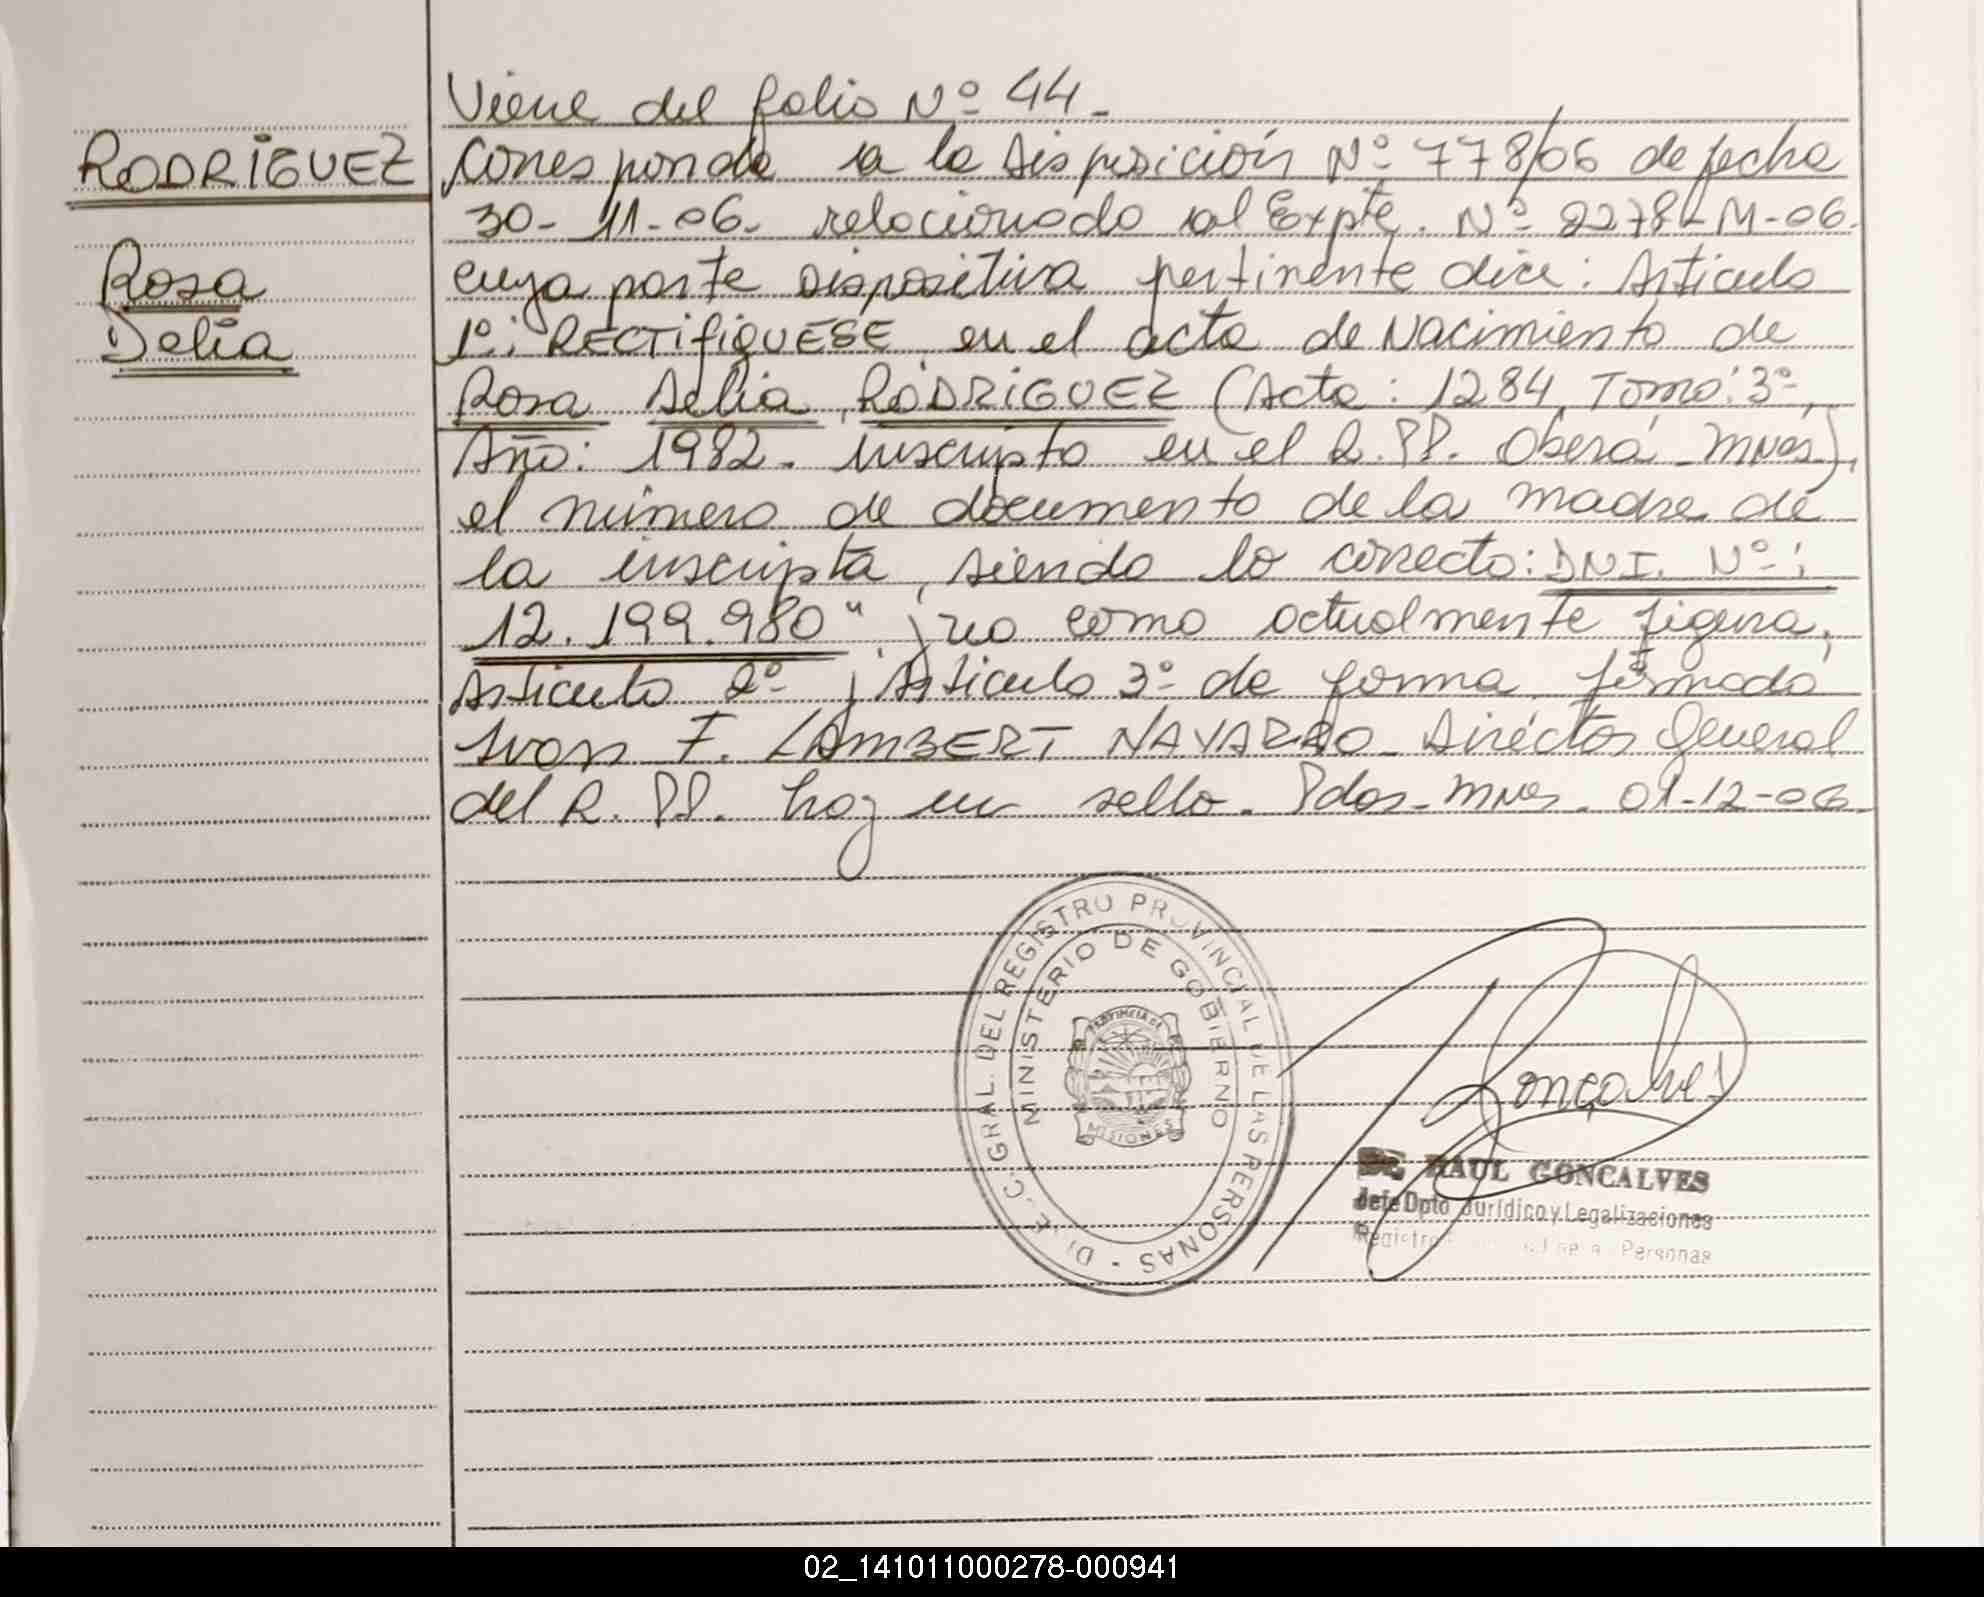 Viene del folio Nº 44.-
RODRÍGUEZ
Rosa
Delia
Corresponde a la Disposición Nº 778/06 de fecha
30-11-06. relacionado al Expte. Nº 2278-M-06.
cuya parte dispositiva pertinente dice: Articulo
1º: RECTIFIQUESE en el acta de Nacimiento de
Rosa Delia RODRÍGUEZ (Acta: 1284, Tomo: 3º,
Año: 1982. Inscripto en el R.PP. Oberá-Mnes),
el número de documento de la madre de
la inscripta, siendo lo correcto: DNI. Nº:
12.199.980" y no como actualmente figura,
Articulo 2º y Articulo 3º de forma firmado
Ivan F. LAMBERT NAVARRO- Director General
del R.PP. hay un sello. Pdas-Mnes. 01-12-06.
DIR.C.GRAL. DEL REGISTRO PROVINCIAL DE LAS PERSONAS -
MINISTERIO DE GOBIERNO
PROVINCIA DE
MISIONES
Gonçalves
Dr. RAUL GONCALVES
Jefe Dpto Jurídico y Legalizaciones
Registro Personas
02_141011000278-000941